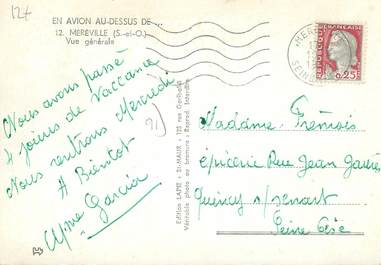 127
EN AVION AU-DESSUS DE ...
12. MEREVILLE (S.-et-O.)
Vue générale
Nous avons passé
4 joires de Vaccance
Nous rentrons Mercredi
A Bientot
Mme Garcia
Edition LAPIE - St-MAUR - 125 rue Garibaldi
Véritable photo au bromure - Reprod. interdite
REPUBLIQUE FRANÇAISE
0,25
Madame Frémois
épicerie Rue Jean Jaurès
Quincy s/senart
Seine Oise